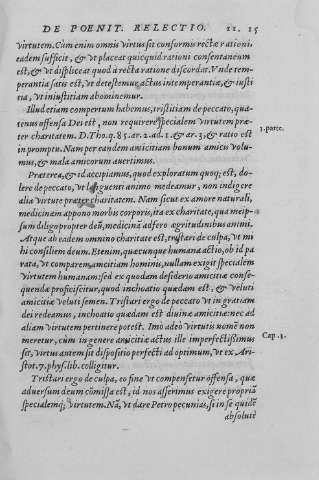 DE POENIT. RELECTIO. 11. 15
virtutem. Cum enim omnis virtus sit conformis rectæ rationi,
eadem sufficit, & vt placeat quicquid rationi consentaneum
est, & vt displiceat quod à recta ratione discordat. Vnde tem-
perantia satis est, vt detestemur actus intemperantiæ, & iusti
tia, vt iniustitiam abominemur.
Illud etiam compertum habemus, tristitiam de peccato, qua-
tenus offensa Dei est, non requirere specialem virtutem præ-
ter charitatem. D. Tho. q. 85. ar. 2. ad. 1. & ar. 3, & ratio est
3. parte.
in promptu. Nam per eandem amicitiam bonum amicis volu-
mus, & mala amicorum auertimus.
Præterea, & id accipiamus, quod exploratum quoque est, do-
lere de peccato, vt languenti animo medeamur, non indigere
alia virtute præter charitatem. Nam sicut ex amore naturali,
medicinam appono morbis corporis, ita ex charitate, qua meip-
sum diligo propter deũ, medicinã adfero ægritudinibus animi.
Atque ab eadem omnino charitate est, tristari de culpa, vt mi
hi consiliem deum. Etenim, quæcunque humana actio, ob id pa
rata, vt comparem amicitiam hominis, nullam exigit specialem
virtutem humanam: sed ex quodam desiderio amicitiæ conse-
quendæ proficiscitur, quod inchoatio quædam est, & veluti
amicitiæ veluti semen. Tristari ergo de peccato vt in gratiam
dei redeamus, inchoatio quædam est diuinæ amicitiæ: nec ad
aliam virtutem pertinere potest. Imò adeò virtutis nomẽ non
meretur, cum in genere amicitiæ actus ille imperfectissimus
Cap. 3.
sit, virtus autem sit dispositio perfecti ad optimum, vt ex, Ari-
stot. 7. phys. lib. colligitur.
Tristari ergo de culpa, eo fine vt compensetur offensa, quæ
aduersum deum cõmissa est, id nos asserimus exigere propriã
specialemq; virtutem. Nã, vt dare Petro pecunias, si in se quidẽ
absolutè